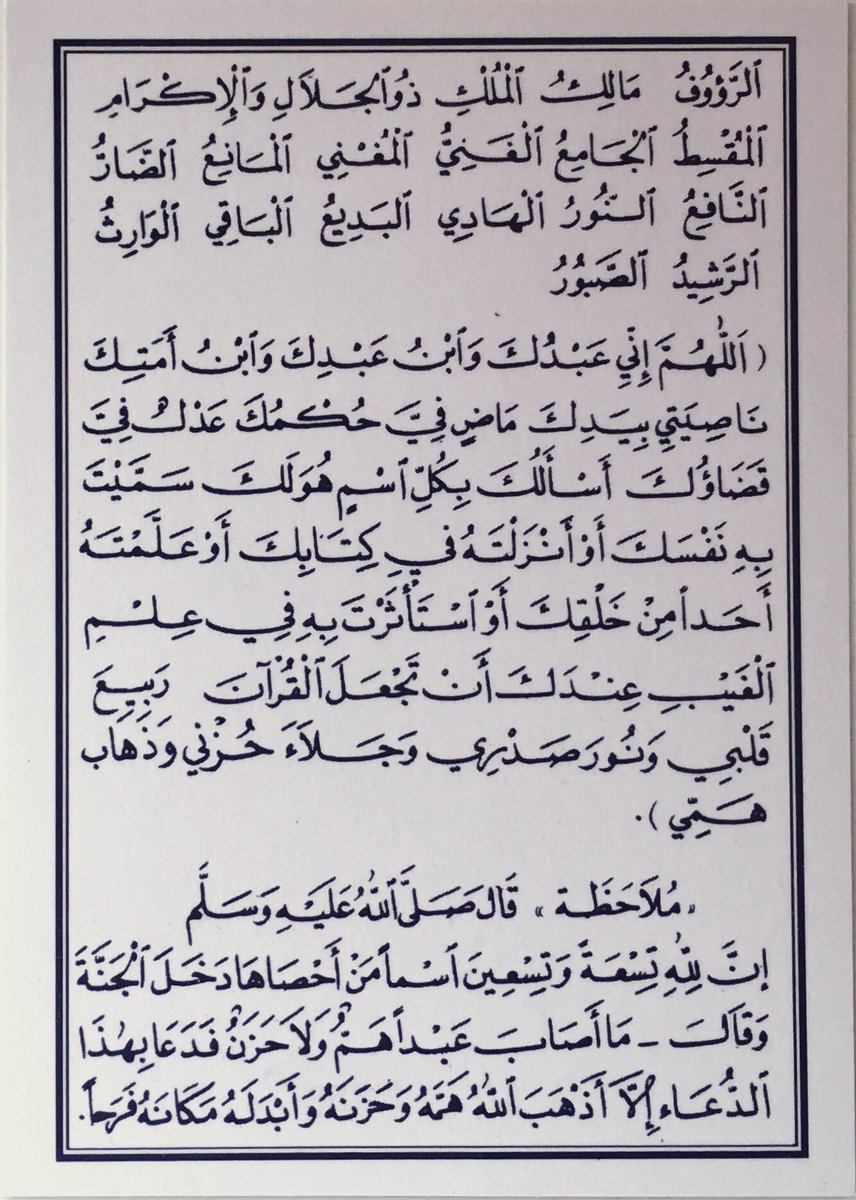 ٱلرَّؤُوفُ مَالِكُ ٱلْمُلْكِ ذُوٱلْجَلَالِ وَٱلْإِكْرَامِ
ٱلْمُقْسِطُ ٱلْجَامِعُ ٱلْغَنِيُّ ٱلْمُغْنِي ٱلْمَانِعُ ٱلضَّارُّ
ٱلنَّافِعُ ٱلنُّورُ ٱلْهَادِي ٱلْبَدِيعُ ٱلْبَاقِي ٱلْوَارِثُ
ٱلرَّشِيدُ ٱلصَّبُورُ
( ٱللَّهُمَّ إِنِّي عَبْدُكَ وَٱبْنُ عَبْدِكَ وَٱبْنُ أَمَتِكَ
نَاصِيَتِي بِيَدِكَ مَاضٍ فِيَّ حُكْمُكَ عَدْلٌ فِيَّ
قَضَاؤُكَ أَسْأَلُكَ بِكُلِّ ٱسْمٍ هُوَلَكَ سَمَّيْتَ
بِهِ نَفْسَكَ أَوْأَنْزَلْتَهُ فِي كِتَابِكَ أَوْعَلَّمْتَهُ
أَحَداً مِنْ خَلْقِكَ أَوْ ٱسْتَأْثَرْتَ بِهِ فِي عِلْمِ
ٱلْغَيْبِ عِنْدَكَ أَنْ تَجْعَلَ ٱلْقُرْآنَ رَبِيعَ
قَلْبِي وَنُورَ صَدْرِي وَجَلَاءَ حُزْنِي وَذَهَاب
هَمِّي ).
«مُلَاحَظَة» قَالَ صَلَّى ٱللَّهُ عَلَيْهِ وَسَلَّم
إِنَّ لِلَّهِ تِسْعَةً وَتِسْعِينَ ٱسْماً مَنْ أَحْصَاهَا دَخَلَ ٱلْجَنَّةَ
وَقَالَ - مَا أَصَابَ عَبْداً هَمٌّ وَلَا حَزَنٌ فَدَعَا بِهٰذَا
ٱلدُّعَاء إِلَّا أَذْهَبَ ٱللَّهُ هَمَّهُ وَحَزَنَهُ وَأَبْدَلَهُ مَكَانَهُ فَرَحاً.